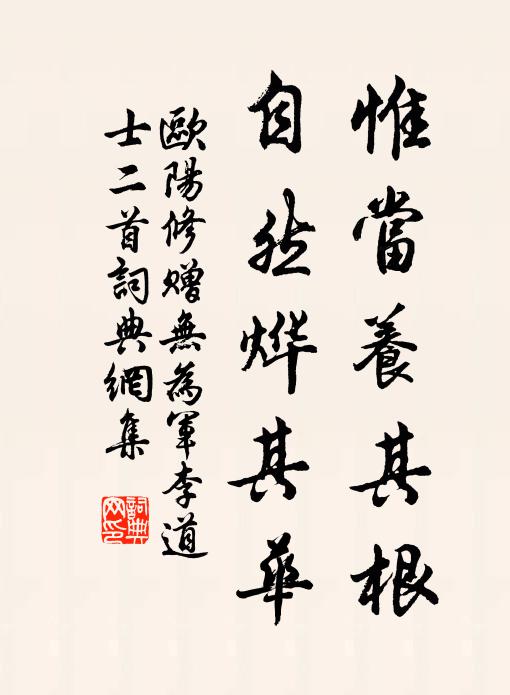 惟當養其根
自然燁其華
歐陽修贈無為軍李道
士二首詞典網集
詞典
网印